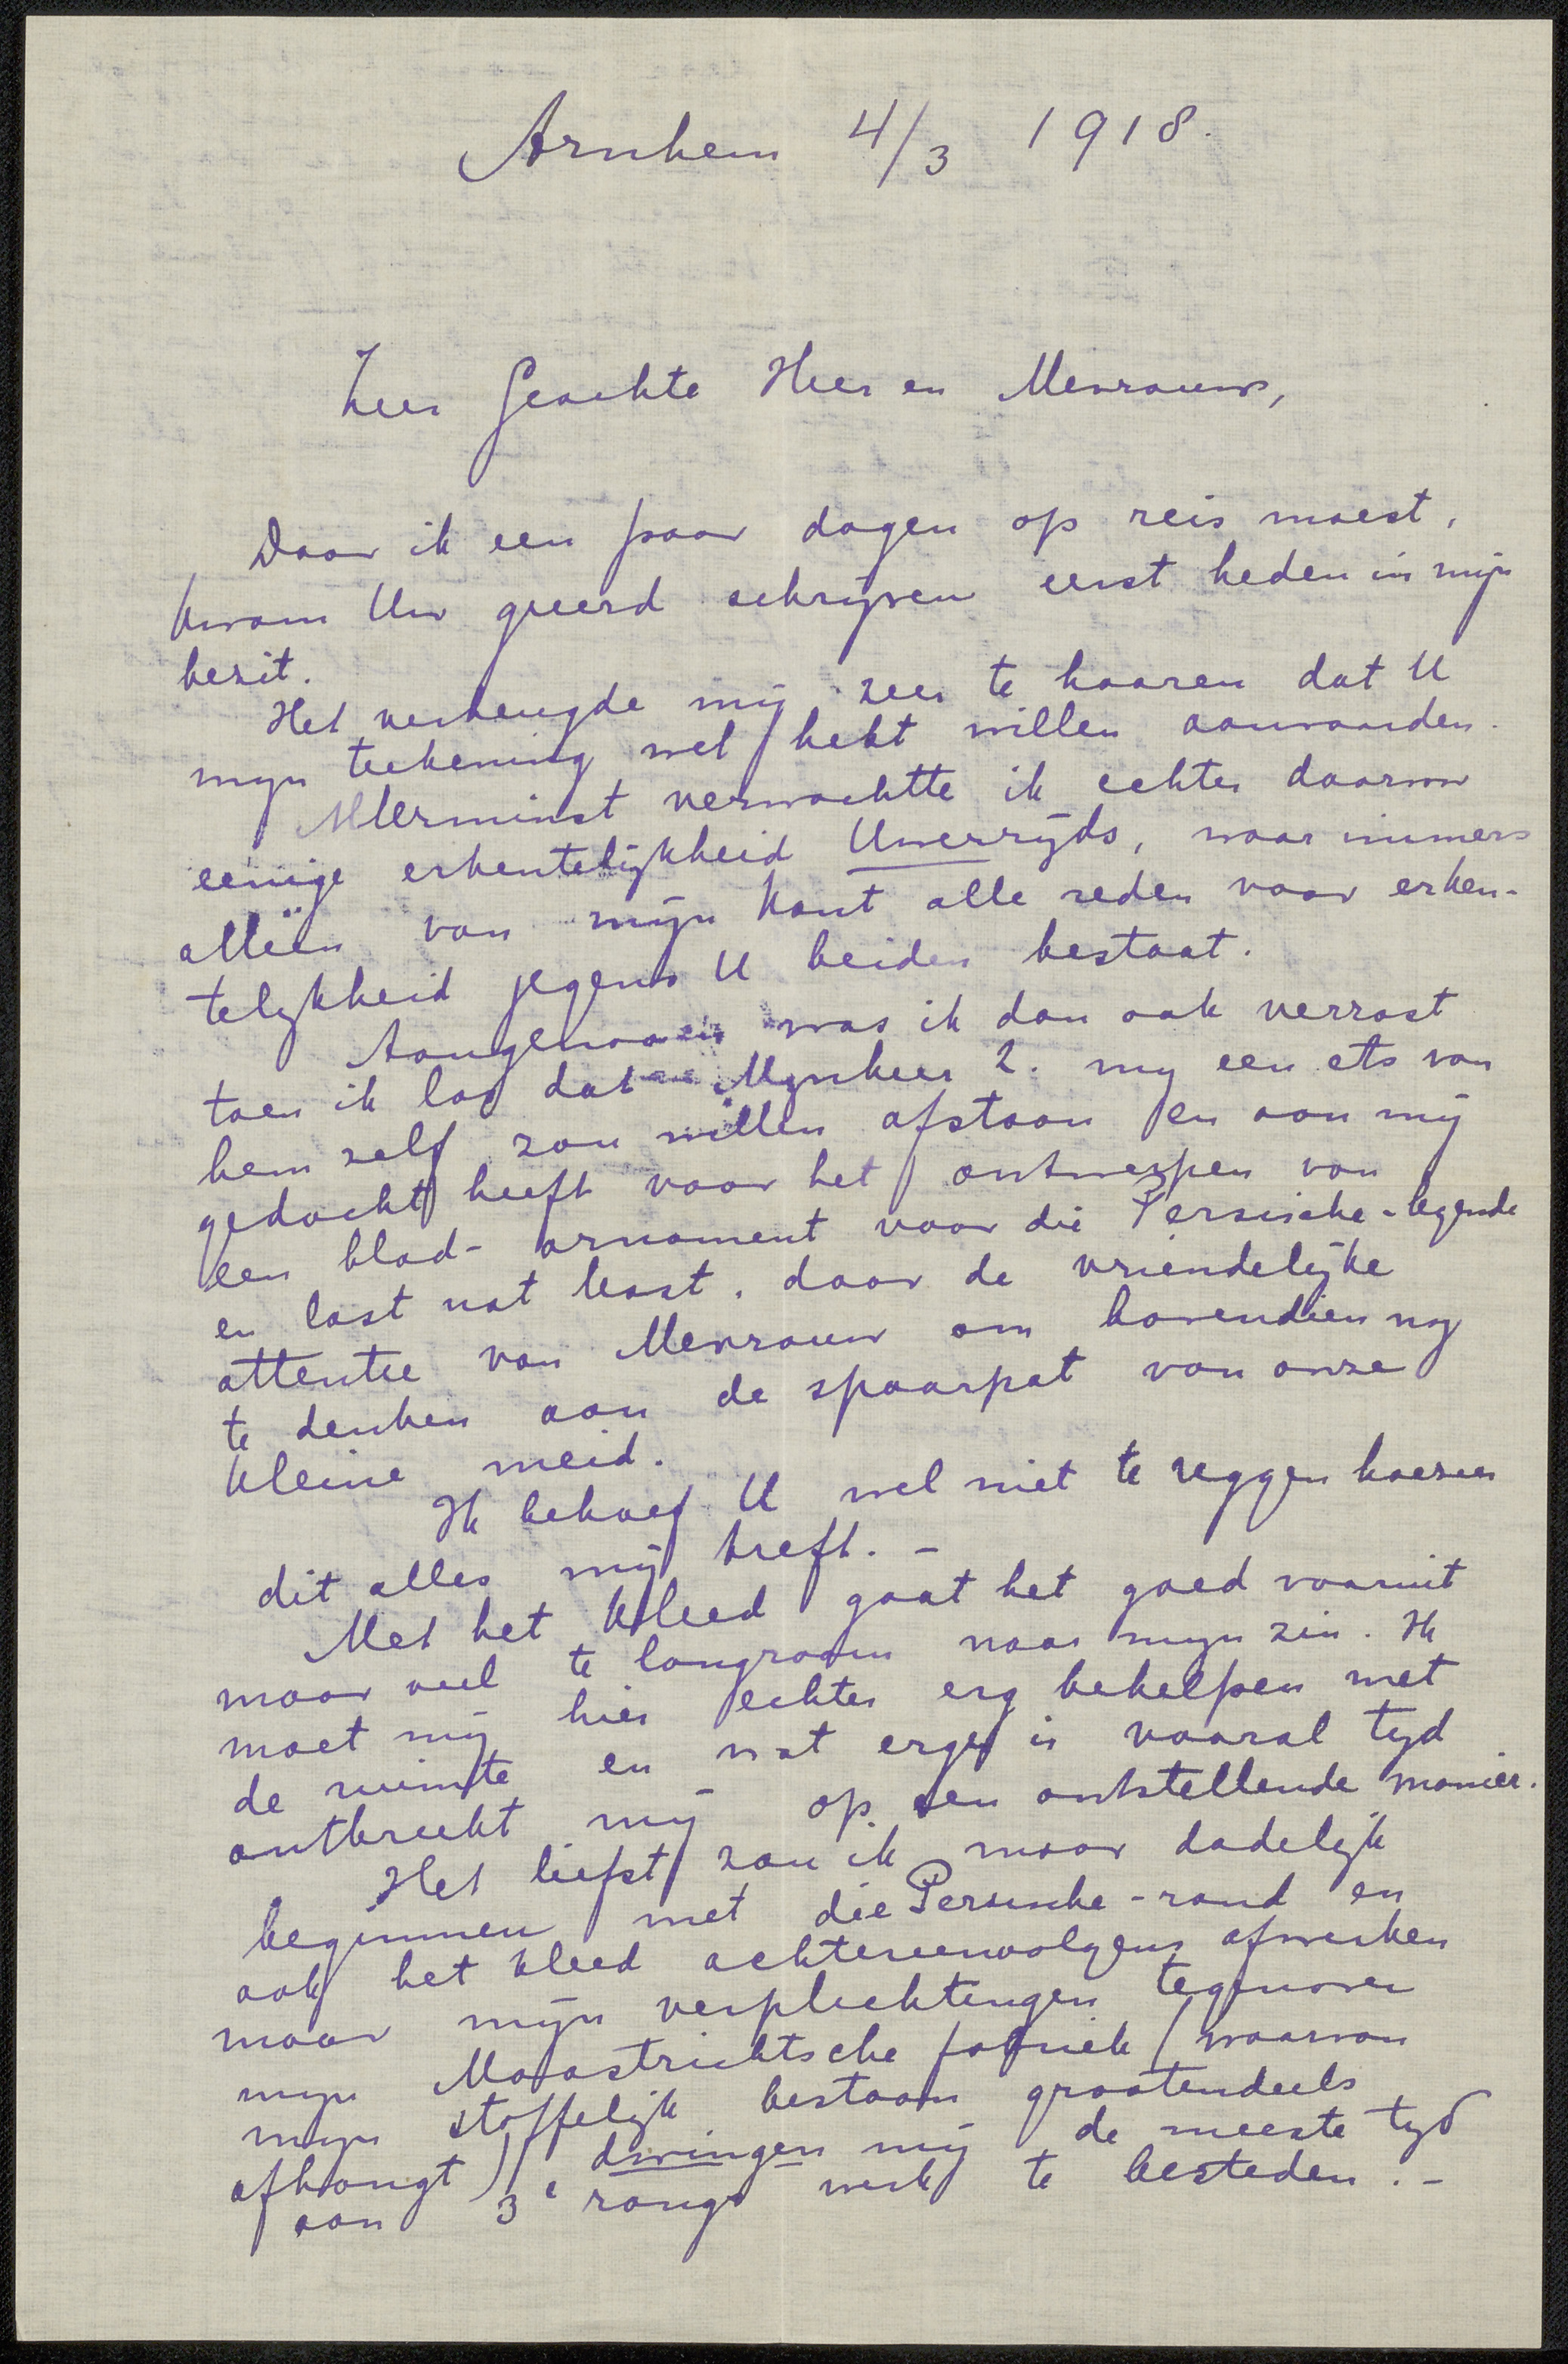 Arnhem 4/3 1918.
Zeer Geachte Heer en Mevrouw,
Daar ik een paar dagen op reis moest,
kwam Uw geeerd schrijven eerst heden in mijn
bezit.
Het verheugde mij zeer te hooren dat U
mijn teekening wel hebt willen aanvaarden.
Allerminst verwachtte ik echter daarvoor
eenige erkentelijkheid Uwerzijds, waar immers
alleen van mijn kant alle reden voor erken-
telijkheid jegens U beiden bestaat.
Aangenaam was ik dan ook verrast
toen ik las dat Mijnheer 2. mij een ets van
hem zelf zou willen afstaan en aan mij
gedacht heeft voor het ontwerpen van
een blad-ornament voor die Persische-legende
en last not least, door de vriendelijke
attentie van Mevrouw om bovendien nog
te denken aan de spaarpot van onze
kleine meid.
Ik behoef U wel niet te zeggen hoezeer
dit alles mij treft. –
Met het kleed gaat het goed vooruit
maar veel te langzaam naar mijn zin. Ik
moet mij hier echter erg behelpen met
de ruimte en wat erger is vooral tijd
ontbreekt mij op een ontstellende manier.
Het liefst zou ik maar dadelijk
beginnen met die Persische-rand en
ook het kleed achtereenvolgens afwerken
maar mijn verplichtingen tegenover
mijn Maastrichtsche fabriek (waarvan
mijn stoffelijk bestaan grootendeels
afhangt) dwingen mij de meeste tijd
aan 3e rangs werk te besteden. –